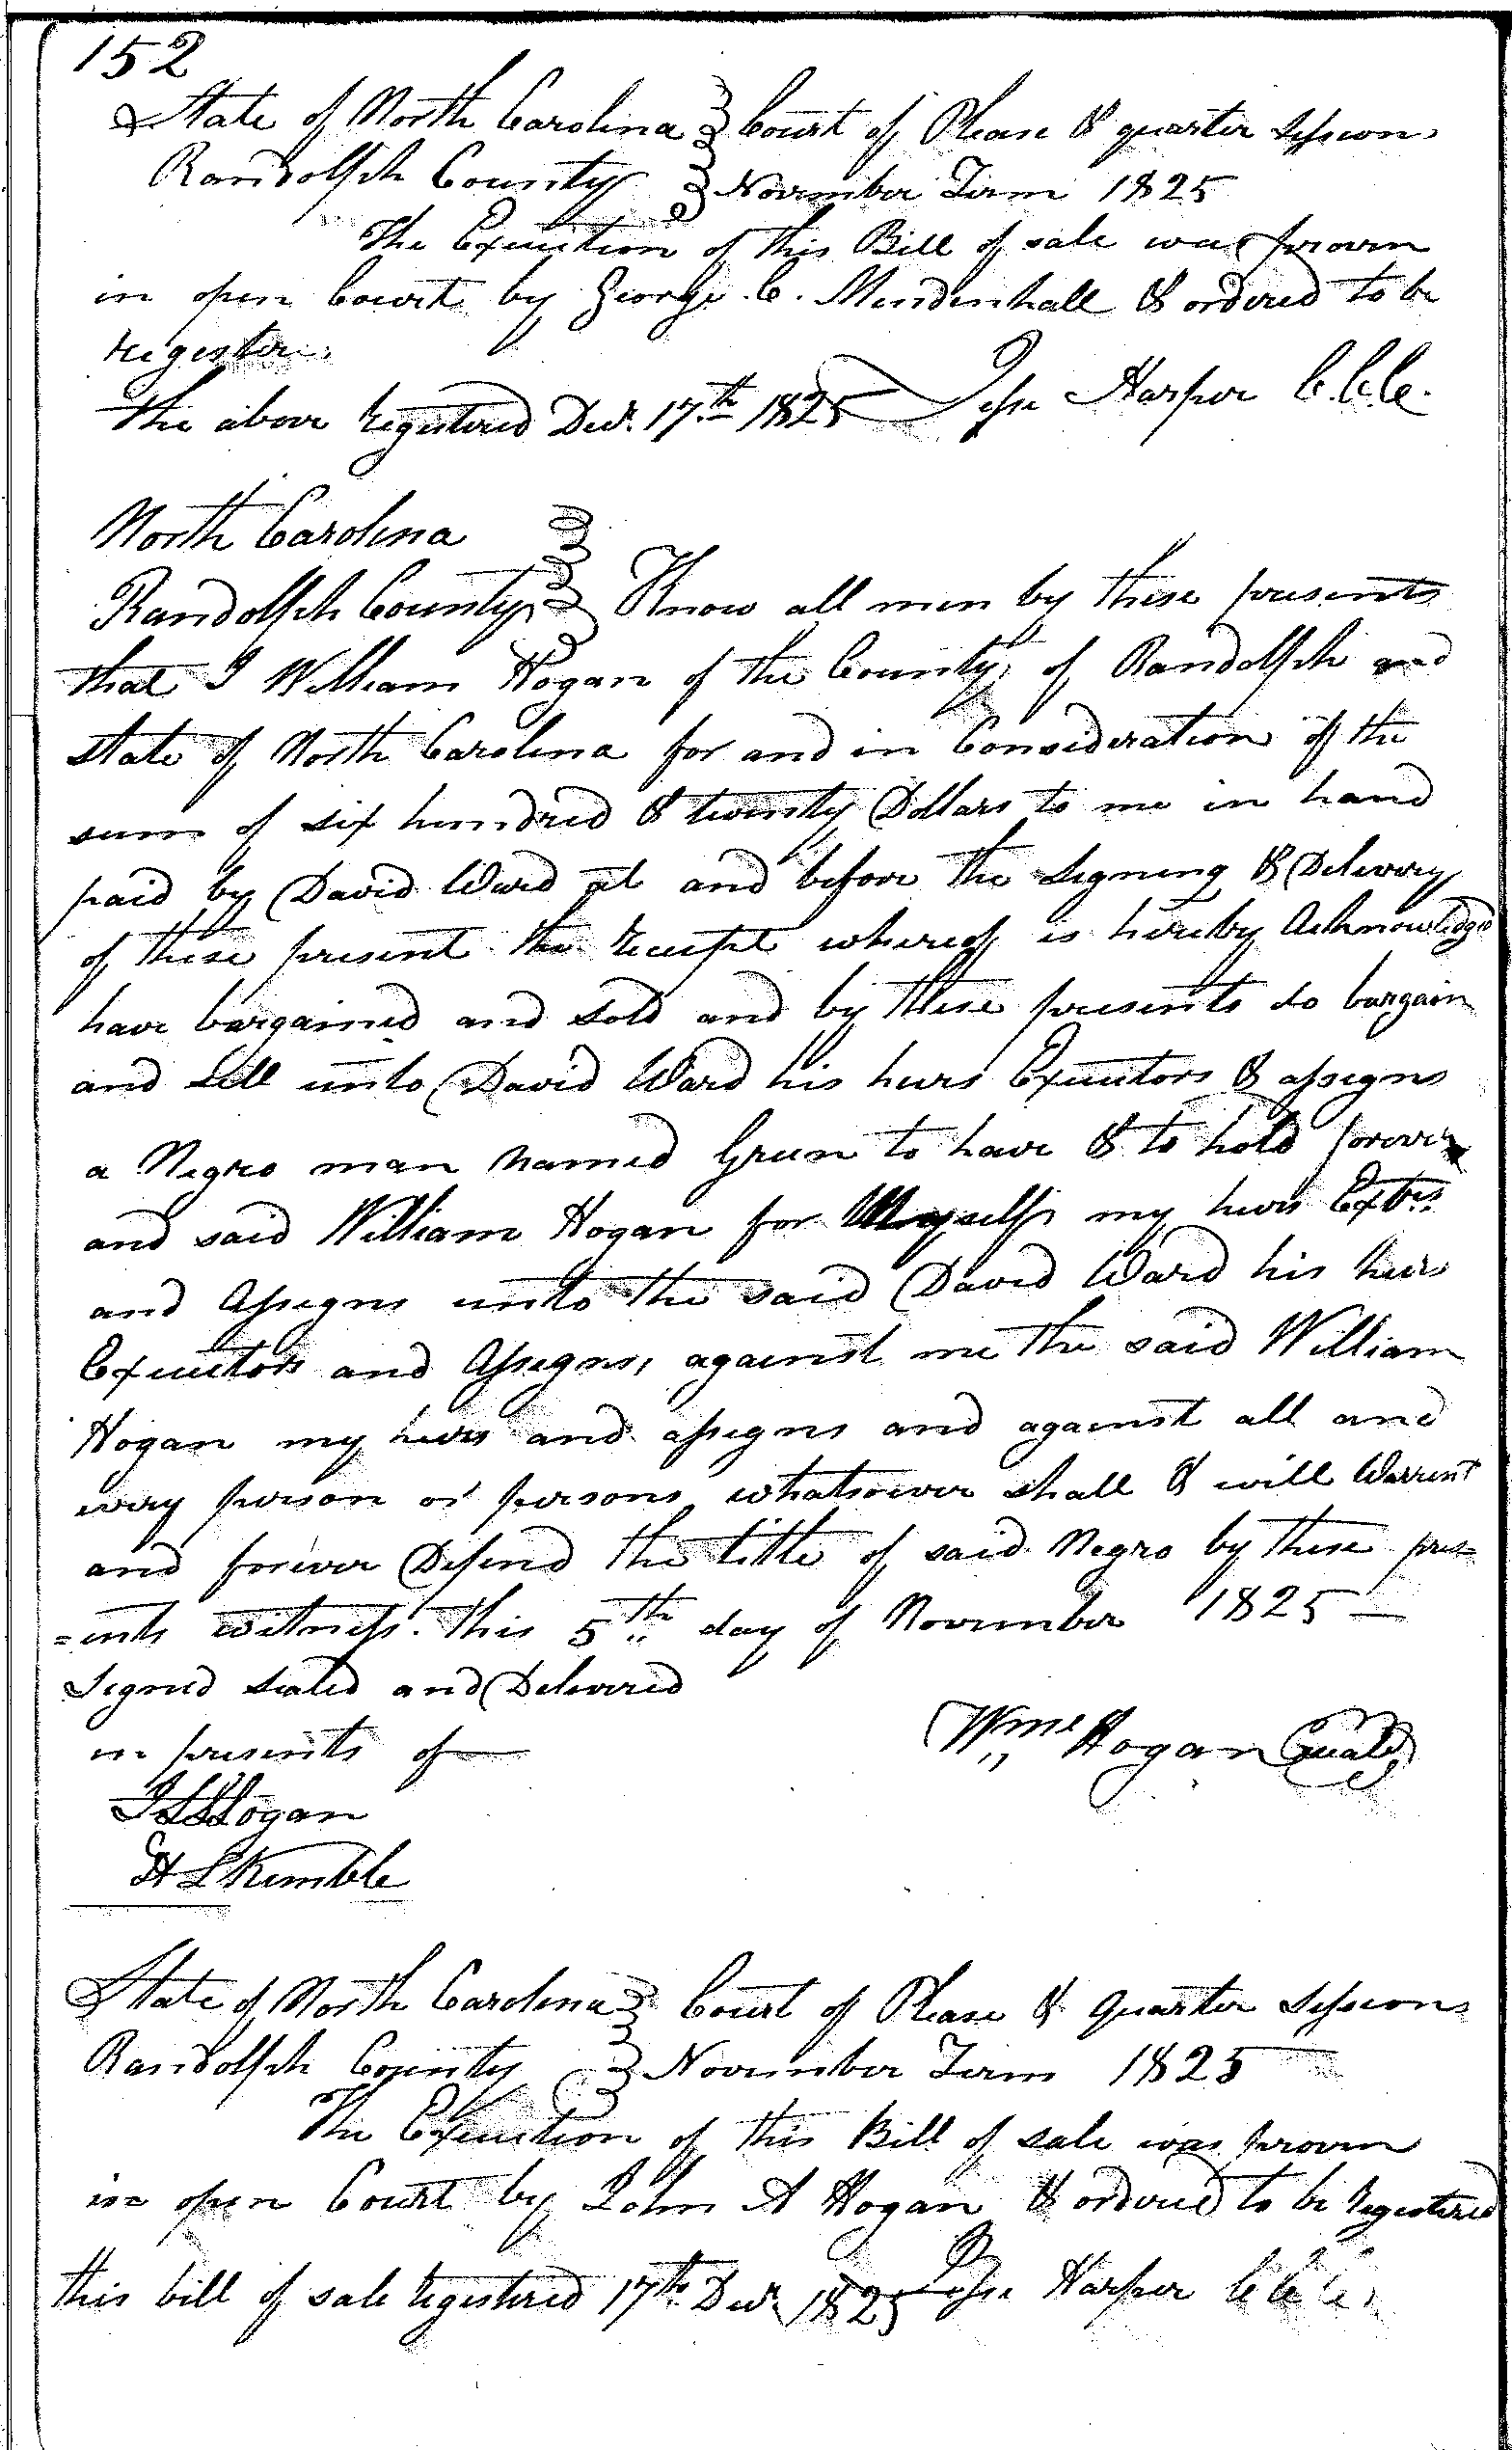 152
State of North Carolina Court of Please & quarter sessions
Randolph County November Term 1825
The Execution of this Bill of sale was proven
in open Court by George C. Mendenhall & ordered to be
register
the above registered Decr. 17.th 1825 Jesse Harper C.C.C.
North Carolina
Randolph County Know all men by these presents
that I William Hogan of the County of Randolph and
state of North Carolina for and in Consideration of the
sum of six hundred & twenty Dollars to me in hand
paid by David Ward at and before the signing & Delivery
of these present the receipt whereof is hereby Acknowledged
have bargained and sold and by these presents do bargain
and sell unto David Ward his heirs Executors & assigns
a Negro man named Green to have & to hold forever
and said William Hogan for Myself my heirs Extrs
and Assigns unto the said David Ward his heirs
Executors and Assigns, against me the said William
Hogan my heirs and assigns and against all and
every person or persons whatsoever shall & will Warrent
and forever Defend the title of said Negro by these pres=
=ents witness. this 5th day of November 1825 —
Signed sealed and Delivered
in presents of Wm Hogan (seal)
Hogan
H L Kimble
State of North Carolina Court of Please & quarter sessions
Randolph County November Term 1825
The Execution of this Bill of sale was proven
in open Court by John A Hogan & ordered to be registered
this bill of sale registered 17th Decr 1825 Jesse Harper C C C